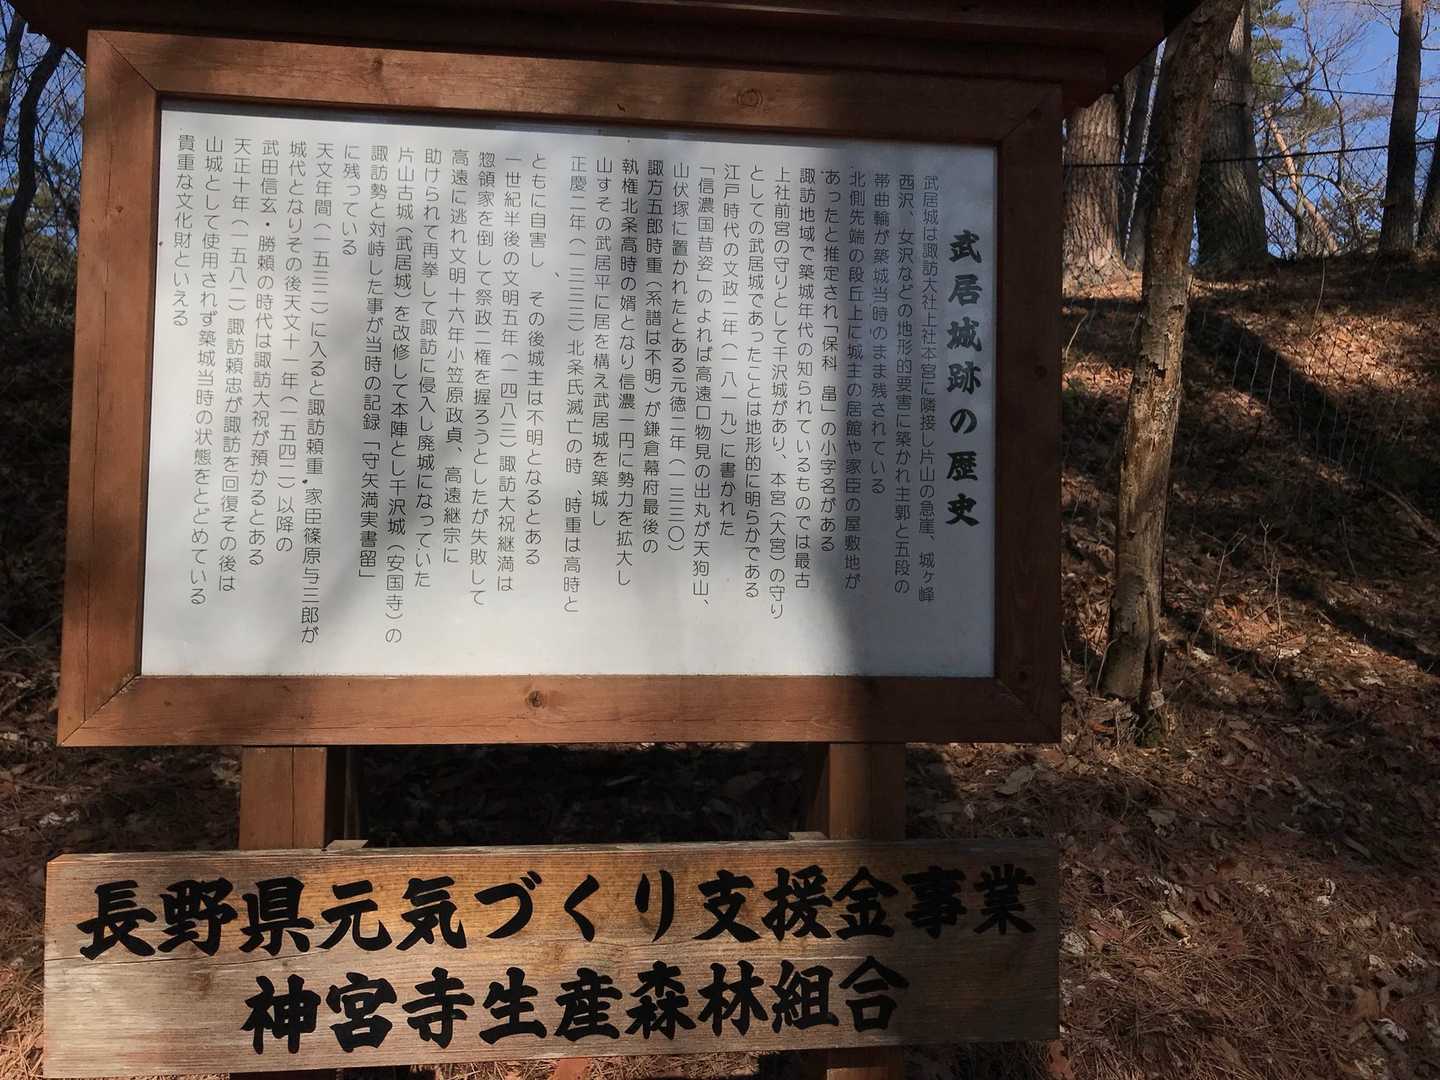 武居城跡の歴史
武居城は諏訪大社上社本宮に隣接し片山の急崖、城ヶ峰
西沢、女沢などの地形的要害に築かれ主郭と五段の
帯曲輪が築城当時のまま残されている
北側先端の段丘上に城主の居館や家臣の屋敷地が
あったと推定され「保科畠」の小字名がある
諏訪地域で築城年代の知られているものでは最古
上社前宮の守りとして干沢城があり、本宮（大宮）の守り
としての武居城であったことは地形的に明らかである
江戸時代の文政二年（一八一九）に書かれた
「信濃国昔姿」のよれば高遠口物見の出丸が天狗山、
山伏塚に置かれたとある元徳二年（一三三〇）
諏方五郎時重（系譜は不明）が鎌倉幕府最後の
執権北条高時の婿となり信濃一円に勢力を拡大し
山すその武居平に居を構え武居城を築城し
正慶二年（一三三三）北条氏滅亡の時、時重は高時と
ともに自害し、その後城主は不明となるとある
一世紀半後の文明五年（一四八三）諏訪大祝継満は
惣領家を倒して祭政二権を握ろうとしたが失敗して
高遠に逃れ文明十六年小笠原政貞、高遠継宗に
助けられて再挙して諏訪に侵入し廃城になっていた
片山古城（武居城）を改修して本陣とし干沢城（安国寺）の
諏訪勢と対峙した事が当時の記録「守矢満実書留」
に残っている
天文年間（一五三二）に入ると諏訪頼重、家臣篠原与三郎が
城代となりその後天文十一年（一五四二）以降の
武田信玄・勝頼の時代は諏訪大祝が預かるとある
天正十年（一五八二）諏訪頼忠が諏訪を回復その後は
山城として使用されず築城当時の状態をとどめている
貴重な文化財といえる
長野県元気づくり支援金事業
神宮寺生産森林組合